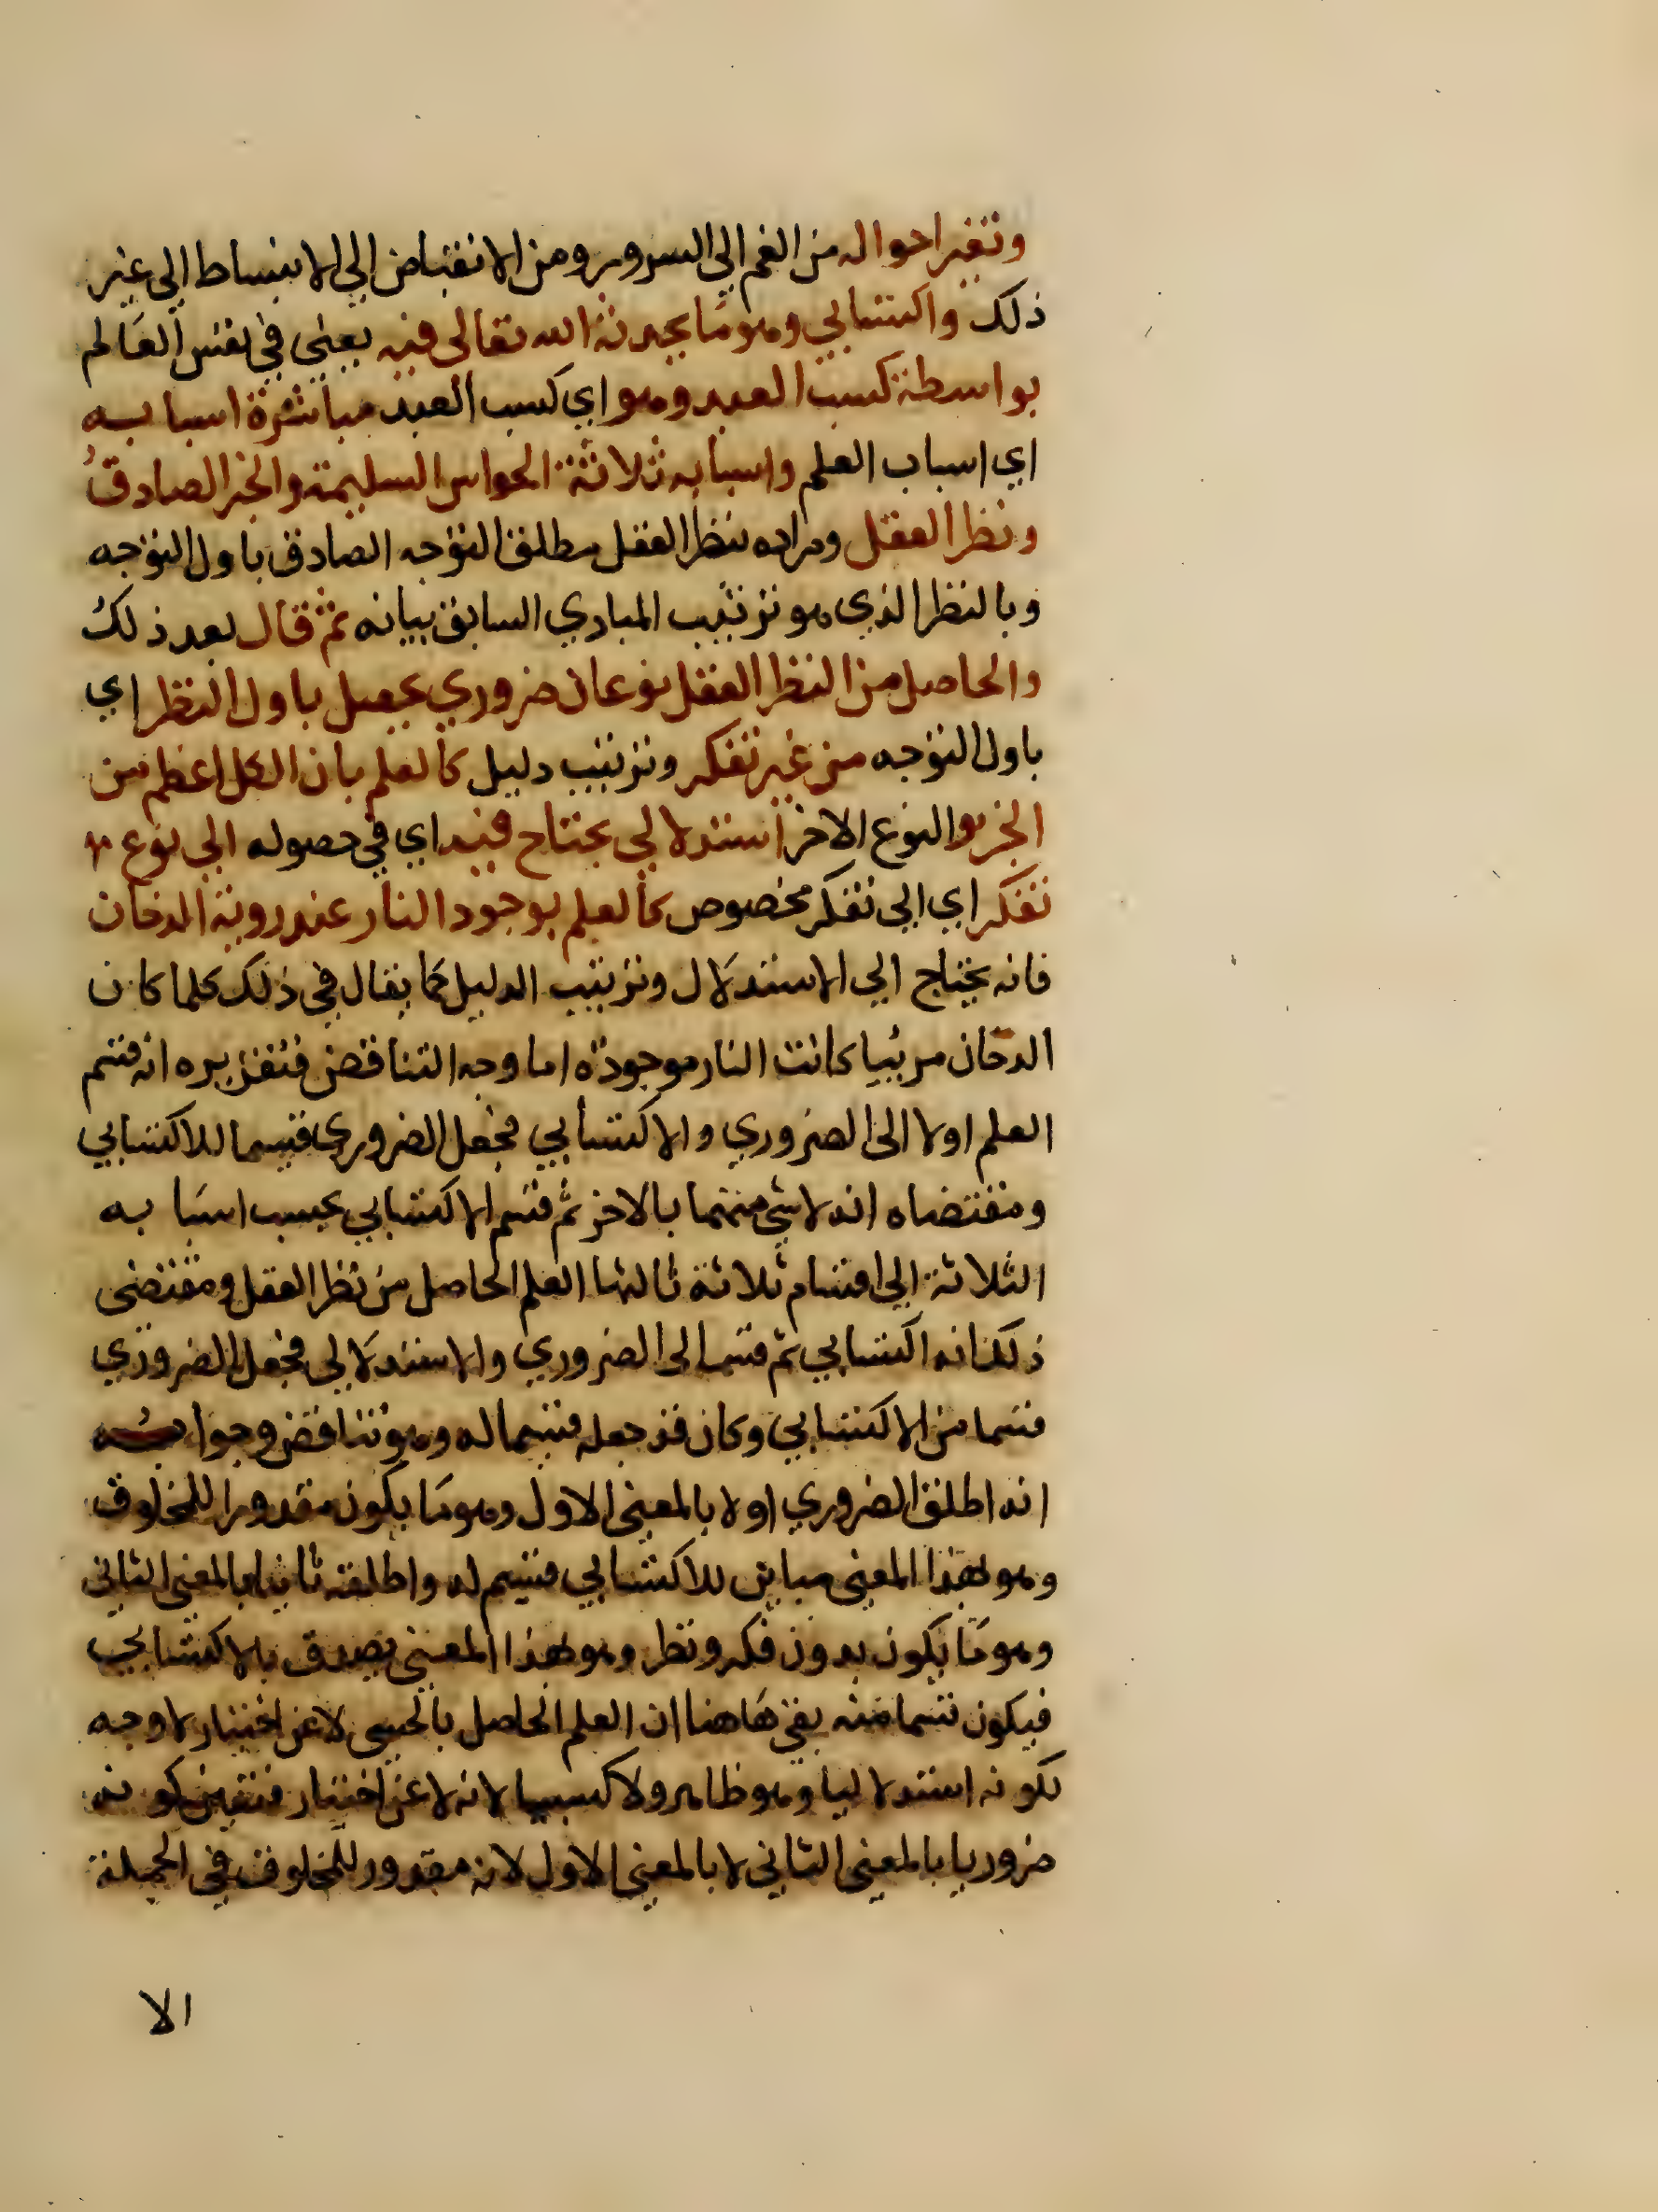 وتغير احواله من الغم الي السرور ومن الانقباض الي الانبساط الي غير
ذلك واكتسابي وهو ما يحدثه الله تعالى فيه يعني في نفس العالم
بواسطة كسب العبد وهو اي كسب العبد مباشرة اسبابه
اي اسباب العلم واسبابه ثلاثة الحواس السليمة والخبر الصادق
ونظر العقل ومراده بنظر العقل مطلق التوجه الصادق باول التوجه
وبالنظر الذي هو ترتيب المبادي السابق بيانه ثم قال بعد ذلك
والحاصل من النظر العقل نوعان ضروري يحصل باول النظر اي
باول التوجه من غير تفكر وترتيب دليل كالعلم بان الكل اعظم من
الجزء والنوع الاخر استدلالي يحتاج فيه اي في حصوله الي نوع
تفكر اي الي تفكر مخصوص كالعلم بوجود النار عند روية الدخان
فانه يحتاج الي الاستدلال وترتيب الدليل كما يقال في ذلك كلما كان
الدخان مرئيا كانت النار موجودة اما وجه التناقض فتقريره انه قسم
العلم اولا الى الضروري والاكتسابي فجعل الضروري قسيما للاكتسابي
ومقتضاه انه لا شي منهما بالاخر ثم قسم الاكتسابي بحسب اسبابه
الثلاثة الي اقسام ثلاثة ثالثها العلم الحاصل من نظر العقل ومقتضى
ذلك انه اكتسابي ثم قسمه الى الضروري والاستدلالي فجعل الضروري
قسما من الاكتسابي وكان قد جعله قسيما له وهو تناقض وجوابه
انه اطلق الضروري اولا بالمعنى الاول وهو ما يكون مقدورا للمخلوق
وهو بهذا المعنى مباين للاكتسابي قسيم له واطلقه ثانيا بالمعنى الثاني
وهو ما يكون بدون فكر ونظر وهو بهذا المعنى يصدق بالاكتسابي
فيكون قسما منه بقي هاهنا ان العلم الحاصل بالحس لا عن اختيار لا وجه
لكونه استدلاليا وهو ظاهر ولا كسبيا لانه لا عن اختيار فتعين كونه
ضروريا بالمعنى الثاني لا بالمعنى الاول لانه مقدور للمخلوق في الجملة
الا